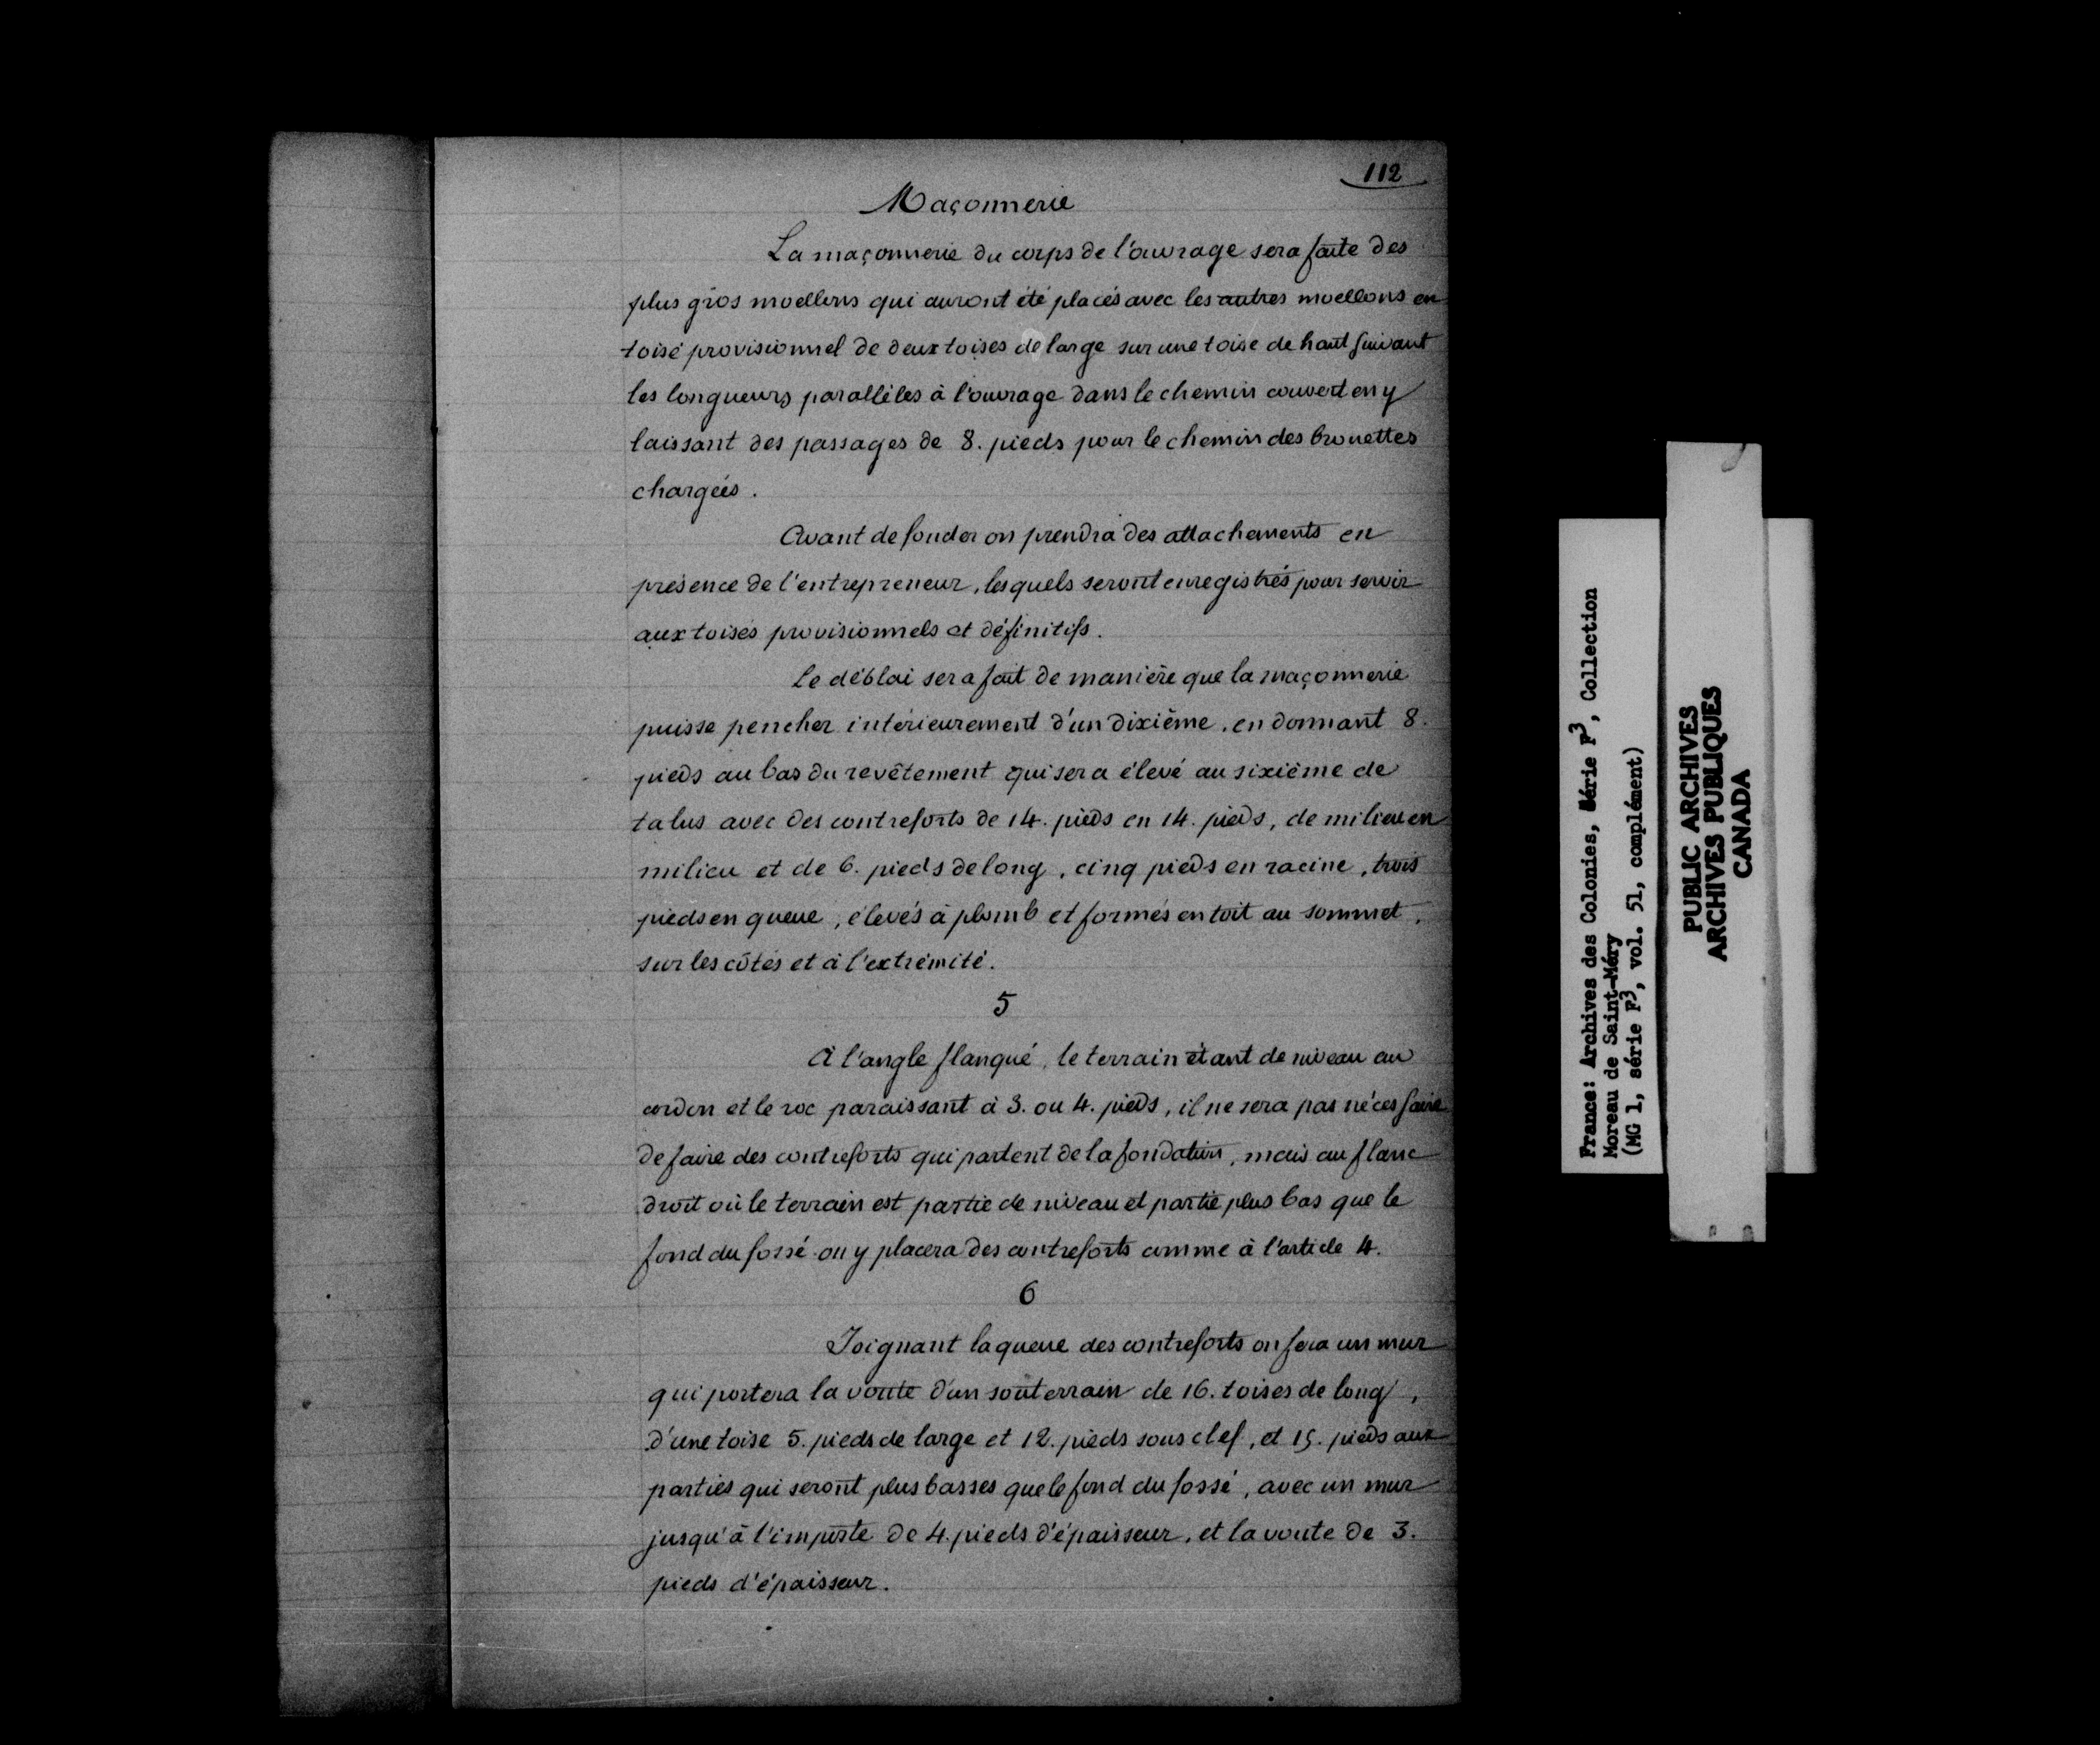 112
Maçonnerie
La maçonnerie du corps de l'ouvrage sera faite des
plus gros moellons qui auront été placés avec les autres moellons en
toisé provisionnel de deux toises de large sur une toise de haut suivant
les longueurs parallèles à l'ouvrage dans le chemin couvert en y
laissant des passages de 8. pieds pour le chemin des brouettes
chargées.
Avant de fonder on prendra des attachements en
présence de l'entrepreneur, lesquels seront enregistrés pour servir
aux toisés provisionnels et définitifs.
Le déblai sera fait de manière que la maçonnerie
puisse pencher intérieurement d'un dixième, en donnant 8.
pieds au bas du revêtement qui sera élevé au sixième de
talus avec des contreforts de 14. pieds en 14. pieds, de milieu en
milieu et de 6. pieds de long, cinq pieds en racine, trois
pieds en queue, élevés à plomb et formés en toit au sommet,
sur les côtés et à l'extrémité.
5
A l'angle flanqué, le terrain étant de niveau au
cordon et le roc paraissant à 3. ou 4. pieds, il ne sera pas nécessaire
de faire des contreforts qui partent de la fondation, mais au flanc
droit où le terrain est partie de niveau et partie plus bas que le
fond du fossé on y placera des contreforts comme à l'article 4.
6
Joignant la queue des contreforts on fera un mur
qui portera la voute d'un souterrain de 16. toises de long,
d'une toise 5. pieds de large et 12. pieds sous clef, et 15. pieds aux
parties qui seront plus basses que le fond du fossé, avec un mur
jusqu'à l'imposte de 4. pieds d'épaisseur, et la voute de 3.
pieds d'épaisseur.
France: Archives des Colonies, Série F3, Collection
Moreau de Saint-Méry
(MG 1, série F3, vol. 51, complément)
PUBLIC ARCHIVES
ARCHIVES PUBLIQUES
CANADA